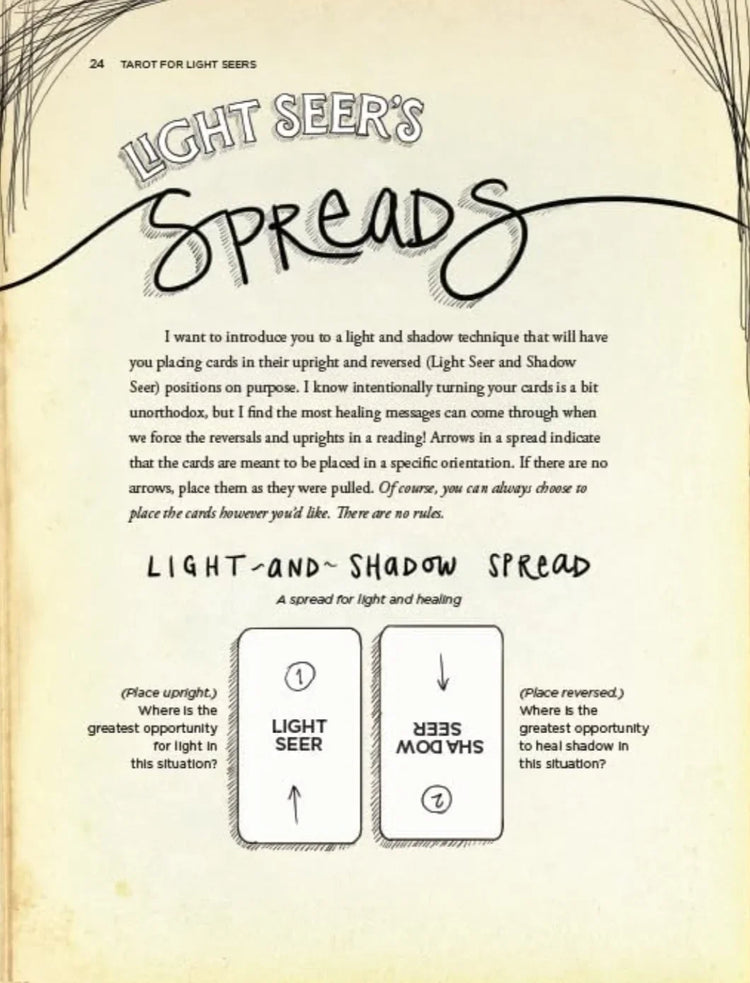 24 TAROT FOR LIGHT SEERS
LIGHT SEER'S
SPREADS
I want to introduce you to a light and shadow technique that will have
you placing cards in their upright and reversed (Light Seer and Shadow
Seer) positions on purpose. I know intentionally turning your cards is a bit
unorthodox, but I find the most healing messages can come through when
we force the reversals and uprights in a reading! Arrows in a spread indicate
that the cards are meant to be placed in a specific orientation. If there are no
arrows, place them as they were pulled. Of course, you can always choose to
place the cards however you'd like. There are no rules.
LIGHT~AND~SHADOW SPREAD
A spread for light and healing
(Place upright.)
Where is the
greatest opportunity
for light in
this situation?
1
LIGHT
SEER
2
SHADOW
SEER
(Place reversed.)
Where is the
greatest opportunity
to heal shadow in
this situation?